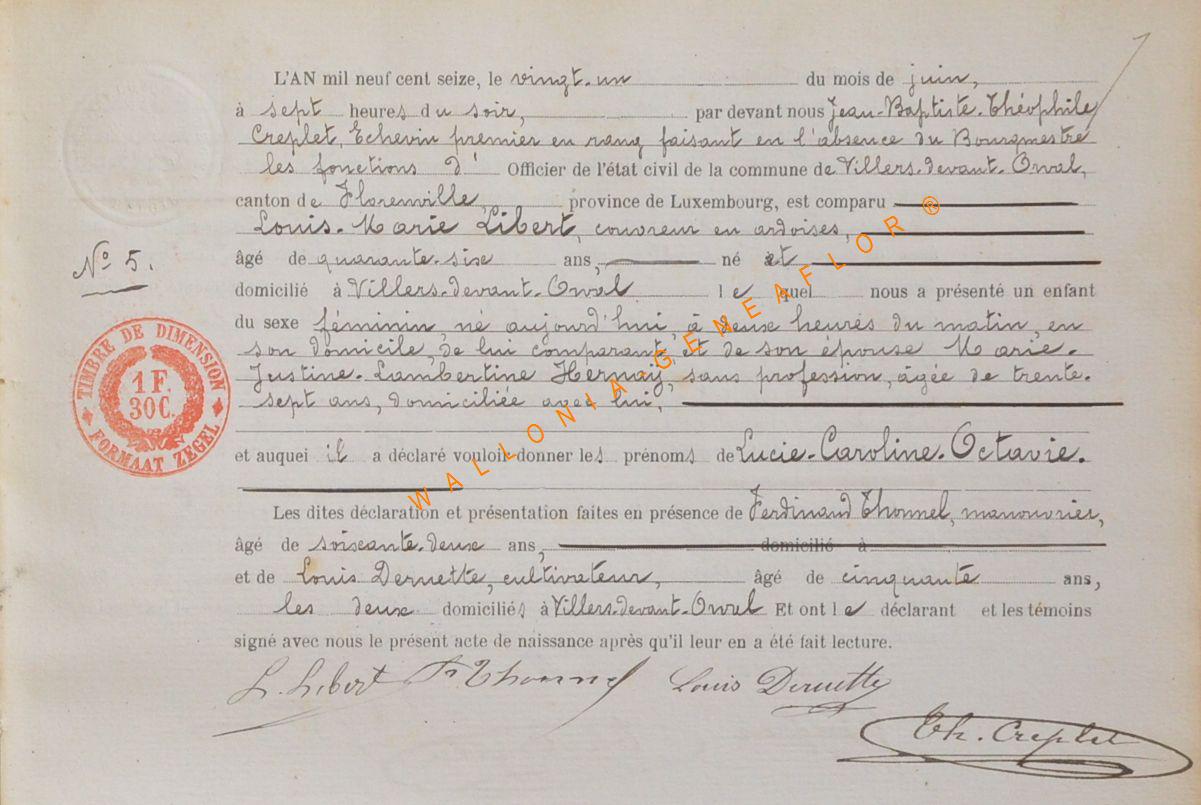 L'AN mil neuf cent seize, le vingt-un du mois de juin,
à sept heures du soir, par devant nous Jean-Baptiste-Théophile
Creplet, Echevin premier en rang faisant en l'absence du Bourgmestre
les fonctions d' Officier de l'état civil de la commune de Villers-devant-Orval,
canton de Florenville, province de Luxembourg, est comparu
Louis-Marie Libert, couvreur en ardoises,
âgé de quarante-six ans, né et
N° 5.
domicilié à Villers-devant-Orval lequel nous a présenté un enfant
du sexe féminin, né aujourd'hui, à deux heures du matin, en
son domicile, de lui comparant, et de son épouse Marie-
Justine-Lambertine Hernay, sans profession, âgée de trente-
sept ans, domiciliée avec lui,
TIMBRE DE DIMENSION
1 F.
30 C.
FORMAAT ZEGEL
et auquel il a déclaré vouloir donner les prénoms de Lucie-Caroline-Octavie.
Les dites déclaration et présentation faites en présence de Ferdinand Thonnel, manouvrier,
âgé de soixante-deux ans, domicilié à
et de Louis Dernette, cultivateur, âgé de cinquante ans,
les deux domiciliés à Villers-devant-Orval Et ont le déclarant et les témoins
signé avec nous le présent acte de naissance après qu'il leur en a été fait lecture.
L. Libert Thonnel Louis Dernette
Th. Creplet
WALLONIA-GENEAFLOR ®